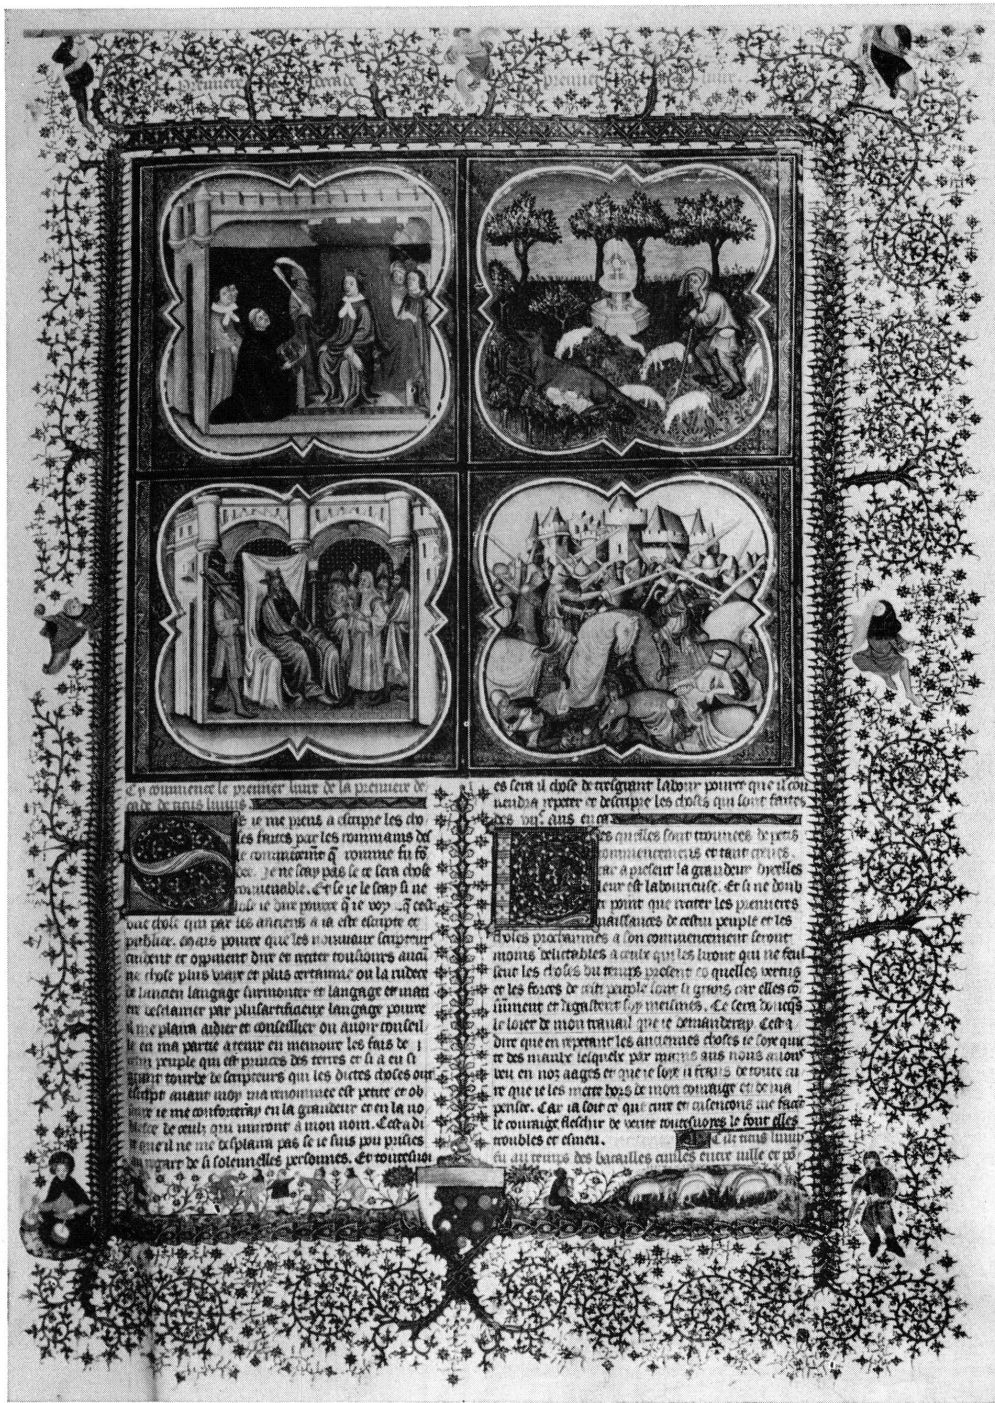 premier
Cy commence le premier liure de la premiere de
cade de titus liuius
Se ie me prens a escripre les cho
ses faites par les rommains des
le commencemẽt q̃ romme fu fõ
dee. Je ne scay pas se ce sera chose
conuenable. Et se ie le scay si ne
lose ie dire pource q̃ ie voy q̃ ceste
chose qui par les anciens a ia este escripte et
publiee. Mais pource que les nouueaux scripteurs
cuident et oppinent dire et reciter tousiours aucũe
chose plus vraie et plus certainne ou la rudece
de lancien langage surmonter et langage et mati
ere esclairier par plus artificieux langage pource
il me plaira aidier et conseillier ou auoir conseil
le en ma partie a tenir en memoire les fais de
peuple qui est princes des terres et si a eu si
grant tourbe de scripteurs qui les dictes choses ont
escript auant moy ma renommee est petite et ob
scure ie me conforteray en la grandeur et en la no
blesce de ceulx qui nuiront a mon nom. Cest a di
re que il ne me desplaira pas se ie suis pou prisies
au regart de si solennelles personnes. Et toutesuoi
es sera il chose de tresgrant labour pource que il cou
uendra repeter et descripre les choses qui sont faites
des vijᶜ ans en ca
les quelles sont trouuees de petis
commencemens et tant creues
car a present la grandeur dicelles
leur est labourieuse. Et si ne doub
te point que reciter les premieres
naissances de cestui peuple et les
choses prochainnes a son commencement seront
moins delictables a ceulx qui les liront qui ne feul
sent les choses du temps present es quelles vertus
et les forces de cest peuple sont si grans car elles cõ
sument et degastent soy meismes. Ce sera doncqs
le loier de mon trauail que ie demanderay. Cest a
dire que en repetant les anciennes choses ie soye quic
te des maulx lesquelx par mains ans nous auons
veu en noz aages et que ie soye si frans de toute cu
re que ie les mette hors de mon couraige et de ma
pensee. Car ia soit ce que cure et cusencons me face
le couraige fleschir de verite toutesuoies le font elles
troubles et esmeu. Cest titus liuius
fu au temps des batailles ciuiles entre sille et põ